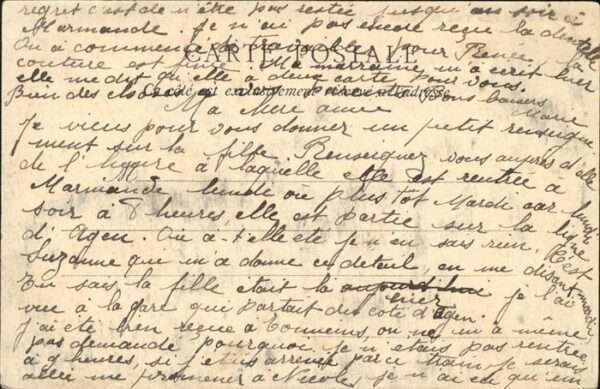 regret c'est de n'être pas restée jusqu'au soir à
Marmande. Je n'ai pas encore reçu la dentelle
On a commencé à travailler pour Renée, la
CARTE POSTALE
couture est finie. Ma marraine m'a écrit hier
elle me dit qu'elle a deux carte pour vous.
Ce côté est exclusivement réservé à l'adresse
Bien des choses Bons baisers
Marie
Ma Mère aimée
Je viens pour vous donner un petit renseigne
ment sur la fille. Renseignez vous auprès d'elle
de l'heure à laquelle elle est rentrée à
Marmande lundi ou plus tôt Mardi car lundi
soir à 8 heures, elle est partie sur la ligne
d'Agen. Où a-t'elle été je n'en sais rien. C'est
Suzanne qui m'a donné ce détail, en me disant
Tu sais la fille était là aujourd'hui je l'ai
hier
vue à la gare qui partait du côté d'Agen.
j'ai été bien reçue à Tonneins, on ne m'a même
pas demandé pourquoi je n'étais pas rentrée
à 9 heures, si j'étais arrivée par ce train, je serais
allée me promener à Nicole, je n'ai eu qu'un